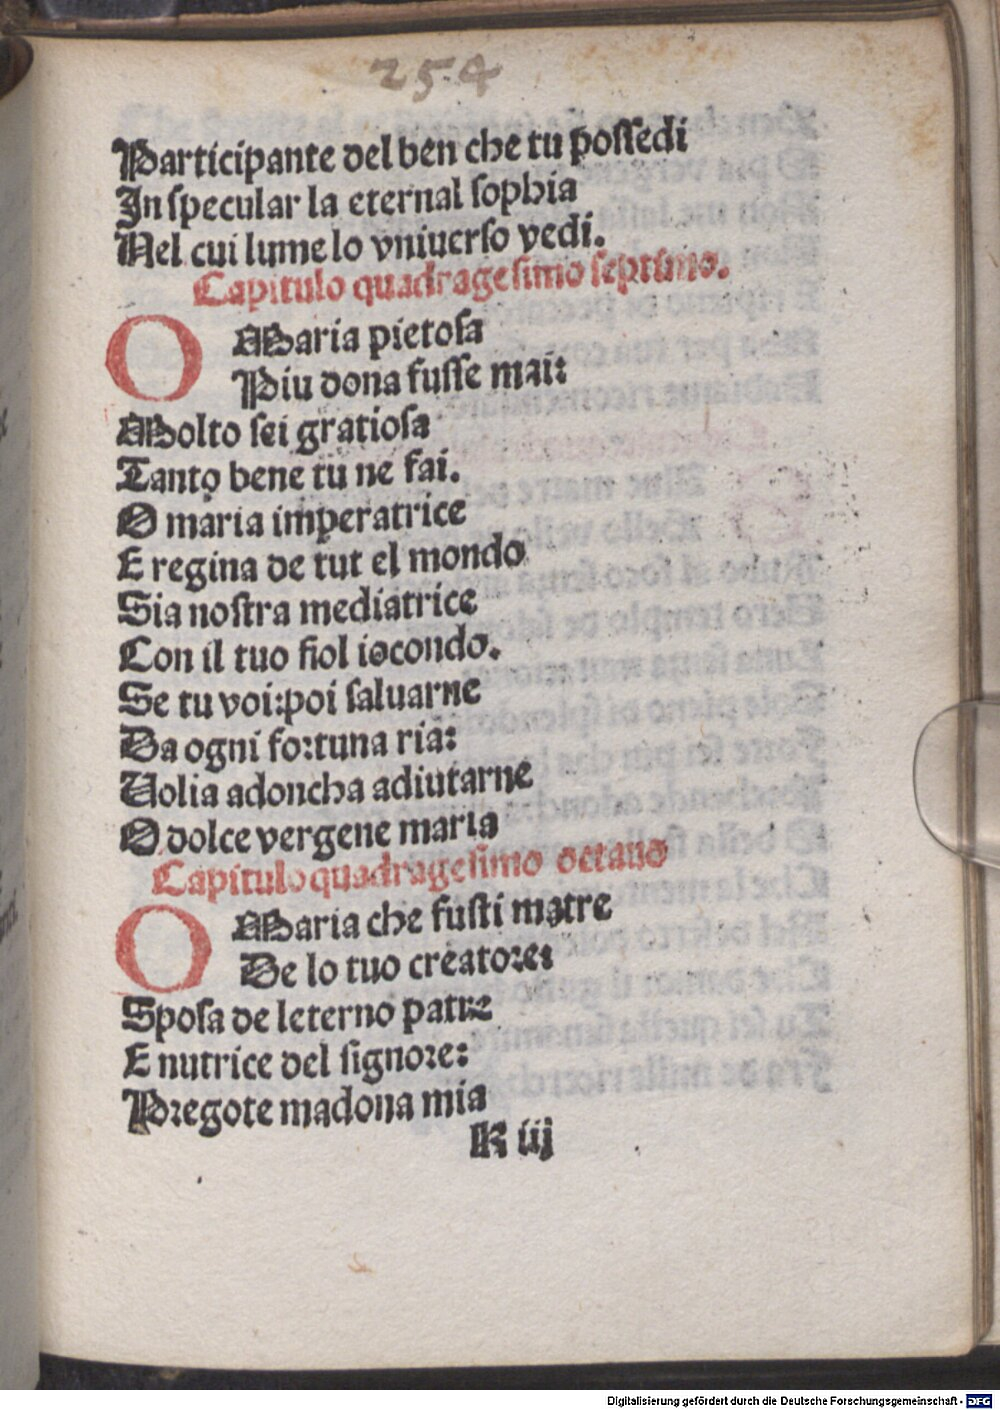 254
Participante del ben che tu possedi
In specular la eternal sophia
Nel cui lume lo vniuerso vedi.
Capitulo quadragesimo septimo.
O Maria pietosa
Piu dona fusse mai:
Molto sei gratiosa
Tanto bene tu ne fai.
O maria imperatrice
E regina de tut el mondo
Sia nostra mediatrice
Con il tuo fiol iocondo.
Se tu voi:poi saluarne
Da ogni fortuna ria:
Uolia adoncha adiutarne
O dolce vergene maria
Capitulo quadragesimo octauo
O Maria che fusti matre
De lo tuo creatore:
Sposa de leterno patre
E nutrice del signore:
Pregote madona mia
K iij
Digitalisierung gefördert durch die Deutsche Forschungsgemeinschaft - DFG